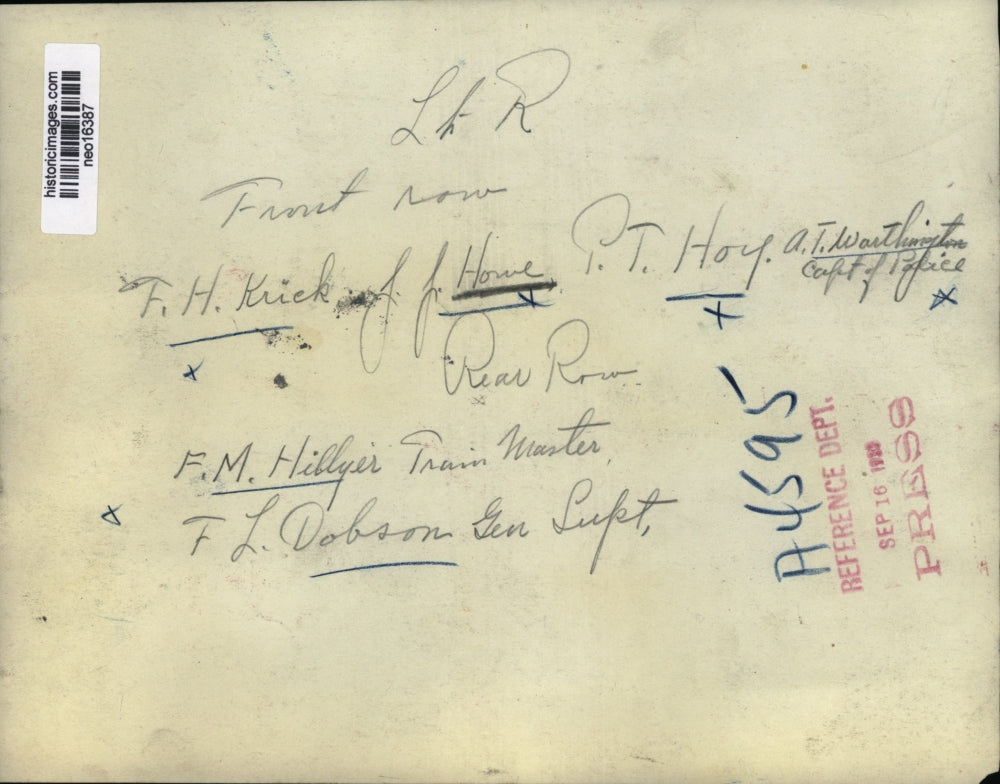 historicimages.com
neo16387
L to R
Front row
F. H. Krick J. J. Howe P. T. Hoy. A. T. Worthington
Capt of Police
Rear Row
F. M. Hillyer Train Master,
F L. Dobson Gen Supt,
A4595
REFERENCE DEPT.
SEP 16
PRESS